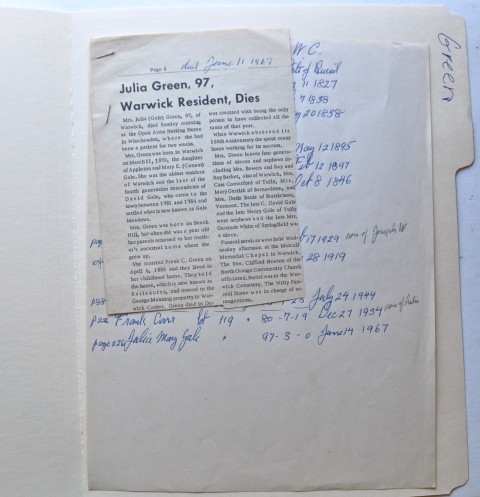 Green
Page 8 died June 11 1967
Julia Green, 97,
Warwick Resident, Dies
Mrs. Julia (Gale) Green, 97, of
Warwick, died Sunday morning
at the Open Arms Nursing Home
in Winchendon, where she had
been a patient for two weeks.
Mrs. Green was born in Warwick
on March 11, 1870, the daughter
of Appleton and Mary E. (Conant)
Gale. She was the oldest resident
of Warwick and the last of the
fourth generation descendents of
David Gale, who came to the
town between 1781 and 1784 and
settled what is now known as Gale
Meadows.
Mrs. Green was born on Beech
Hill, but when she was a year old
her parents returned to her
ancestral home where she
grew up.
She married Frank C. Green on
April 4, 1899 and they lived in
her childhood home. They sold the
house, which is now known as
and moved to the
George Manning property in
Warwick Center. Green died in
was credited with being the only
person to have collected all the
taxes of that year.
When Warwick observed its
150th Anniversary she spent many
hours working for its success.
Mrs. Green leaves four
generations of nieces and nephews
including Mrs. Bowen and Ray and
Roy Barber, also of Warwick, Mrs.
Cass Comerford of Tully, Mrs.
Mary Gerrish of Bernardston, and
Mrs. Doris Beals of Brattleboro,
Vermont. The late C. David Gale
and the late Henry Gale of Tully
were nephews and the late Mrs.
Germain White of Springfield was
a niece.
Funeral services were held
Tuesday afternoon at the
Memorial Chapel in Warwick.
The Rev. Clifford Newton of the
North Orange Community Church
officiated. Burial was in the
Warwick Cemetery. The Witty
Funeral Home was in charge of
arrangements.
W C.
of Burial
11 1827
7 1838
20 1858
May 12 1895
Feb 12 1897
Oct 8 1846
17 1929 son of Joseph W
28 1919
July 24 1944
p 226 Frank Carr lot 119 " 80-7-19 Dec 27 1954 son of
page 226 Julia Mary Gale " 97-3-0 June 14 1967